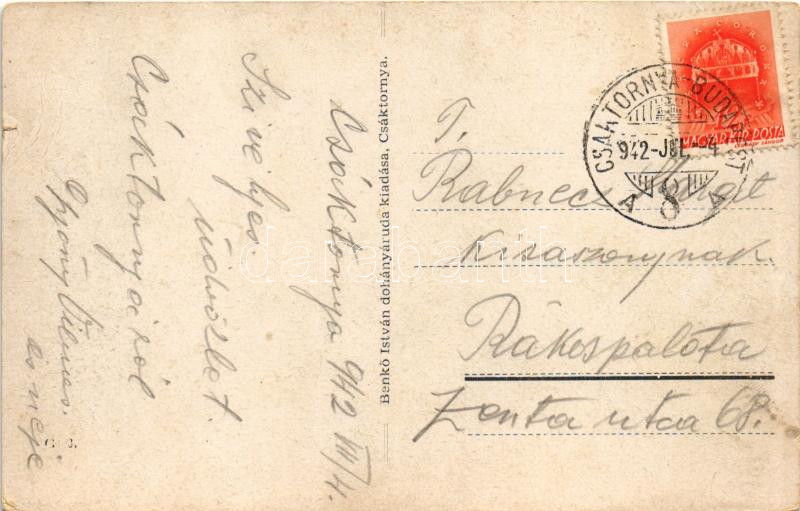 Csáktornya 942 VII/4.
Szivélyes
üdvözlet
Csáktornyáról
Vilmos.
és neje
Benkő István dohányáruda kiadása, Csáktornya.
T.
Kisasszonynak
Rákospalota
Zenta utca 68.
CSÁKTORNYA-BUDAPEST
942-JUL.-4
A 8 A
MAGYAR KIR. POSTA
darabanth